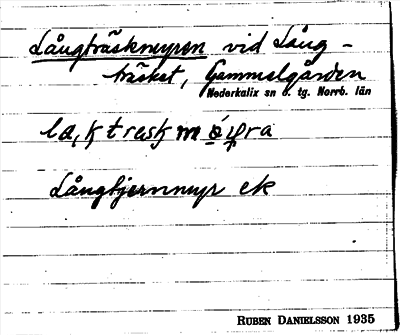 Långträskmyren vid Lång-
träsket, Gammelgården
Nederkalix sn o. tg. Norrb. län
Långtjernmyr ek
RUBEN DANIELSSON 1935